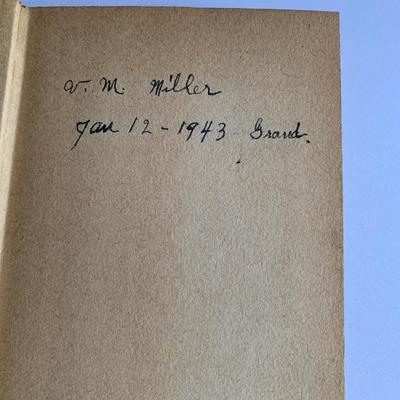 V. M. Miller
Jan 12-1943 Grand.